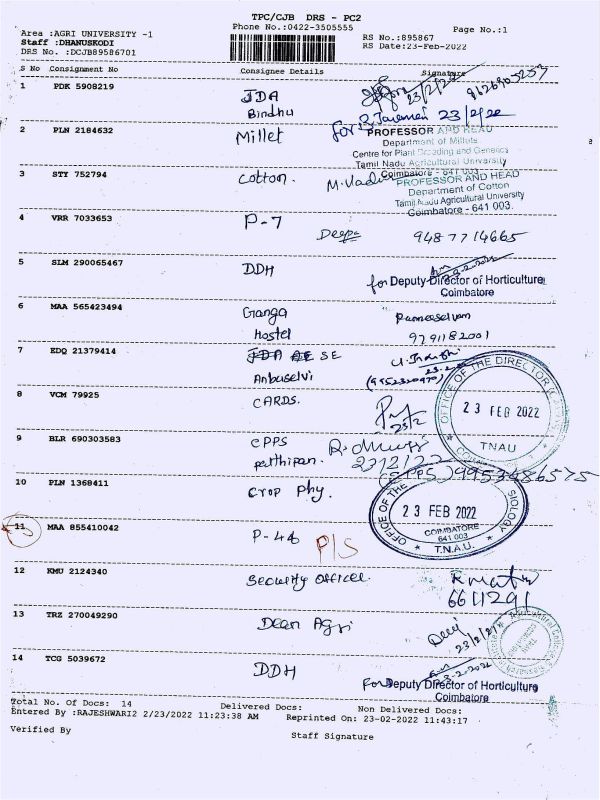 TPC/CJB DRS - PC2
Phone No.:0422-3505555
Page No.:1
Area :AGRI UNIVERSITY -1
Staff :DHANUSKODI
DRS No. :DCJB89586701
RS No.:895867
RS Date:23-Feb-2022
S No Consignment No Consignee Details Signature
1 PDK 5908219 JDA 23/2/22
Bindhu for 23/2/22
2 PLN 2184632 Millet PROFESSOR AND HEAD
Department of Millets
Centre for Plant Breeding and Genetics
Tamil Nadu Agricultural University
Coimbatore - 641 003.
3 STY 752794 Cotton. PROFESSOR AND HEAD
Department of Cotton
Tamil Nadu Agricultural University
Coimbatore - 641 003.
4 VRR 7033653 P-7
Deepa 9487714665
5 SLM 290065467 DDH
for Deputy Director of Horticulture
Coimbatore
6 MAA 565423494 Ganga
Hostel 9791182001
7 EDQ 21379414 JDA SE
Anbuselvi
8 VCM 79925 CARDS. 23/2
OFFICE OF THE DIRECTOR
23 FEB 2022
TNAU
9 BLR 690303583 CPPS
Parthipan. 23/2/22
10 PLN 1368411 Crop Phy.
OFFICE OF THE
23 FEB 2022
COIMBATORE
641 003
T.N.A.U.
11 MAA 855410042 P-44 P/S
12 KMU 2124340 Security Officer.
6611291
13 TRZ 270049290 Dean Agri
14 TCG 5039672 DDH
for Deputy Director of Horticulture
Coimbatore
Total No. Of Docs: 14 Delivered Docs: Non Delivered Docs:
Entered By :RAJESHWARI2 2/23/2022 11:23:38 AM Reprinted On: 23-02-2022 11:43:17
Verified By Staff Signature